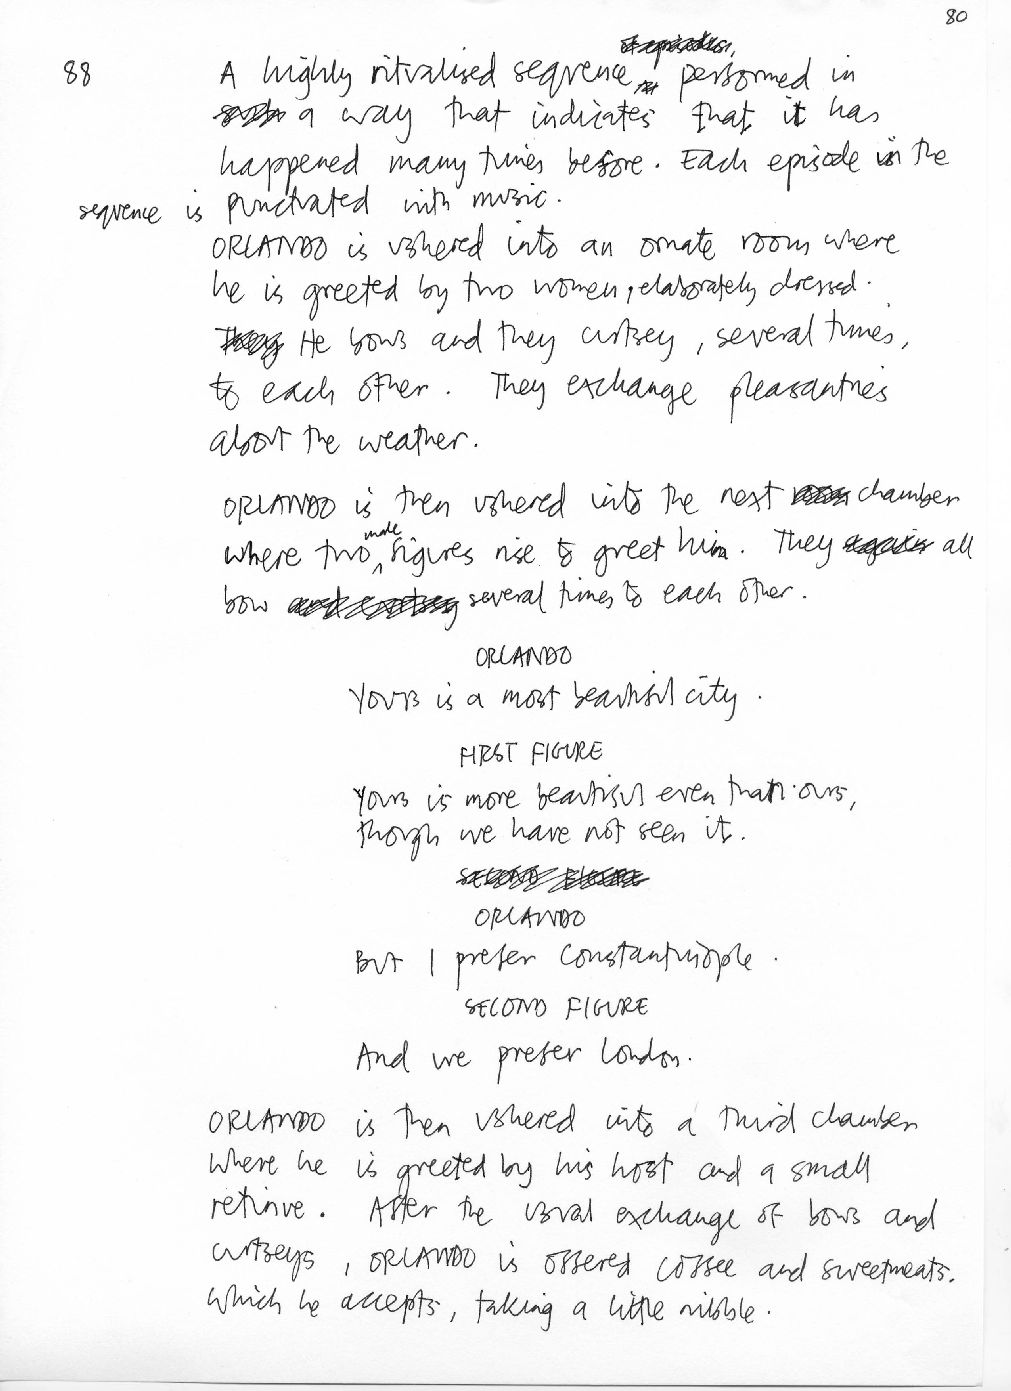 80
of episodes,
88 A highly ritualised sequence, performed in
such a way that indicates that it has
happened many times before. Each episode in the
sequence is punctuated with music.
ORLANDO is ushered into an ornate room where
he is greeted by two women, elaborately dressed.
They He bows and they curtsey, several times,
to each other. They exchange pleasantries
about the weather.
ORLANDO is then ushered into the next room chamber
where two male figures rise to greet him. They again all
bow and curtsey several times to each other.
ORLANDO
Yours is a most beautiful city.
FIRST FIGURE
Yours is more beautiful even than ours,
though we have not seen it.
SECOND FIGURE
ORLANDO
But I prefer Constantinople.
SECOND FIGURE
And we prefer London.
ORLANDO is then ushered into a third chamber
where he is greeted by his host and a small
retinue. After the usual exchange of bows and
curtseys, ORLANDO is offered coffee and sweetmeats.
Which he accepts, taking a little nibble.